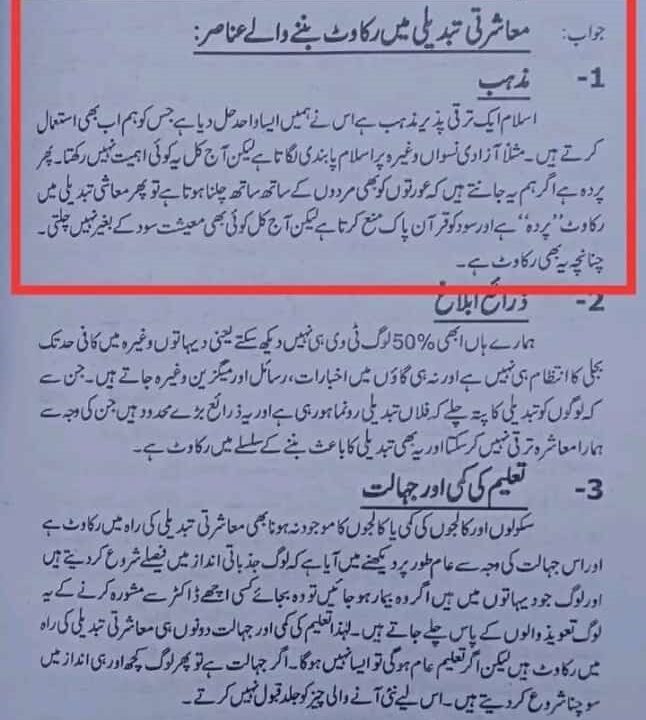 جواب: معاشرتی تبدیلی میں رکاوٹ بننے والے عناصر:
1- مذہب
اسلام ایک ترقی پذیر مذہب ہے اس نے ہمیں ایسا واحد حل دیا ہے جس کو ہم اب بھی استعمال
کرتے ہیں۔ مثلاً آزادی نسواں وغیرہ پر اسلام پابندی لگاتا ہے لیکن آج کل یہ کوئی اہمیت نہیں رکھتا۔ پھر
پردہ ہے اگر ہم یہ جانتے ہیں کہ عورتوں کو بھی مردوں کے ساتھ ساتھ چلنا ہوتا ہے تو پھر معاشی تبدیلی میں
رکاوٹ ”پردہ“ ہے اور سود کو قرآن پاک منع کرتا ہے لیکن آج کل کوئی بھی معیشت سود کے بغیر نہیں چلتی۔
چنانچہ یہ بھی رکاوٹ ہے۔
2- ذرائع ابلاغ
ہمارے ہاں ابھی 50% لوگ ٹی وی ہی نہیں دیکھ سکتے یعنی دیہاتوں وغیرہ میں کافی حد تک
بجلی کا انتظام ہی نہیں ہے اور نہ ہی گاؤں میں اخبارات، رسائل اور میگزین وغیرہ جاتے ہیں۔ جن سے
کہ لوگوں کو تبدیلی کا پتہ چلے کہ فلاں تبدیلی رونما ہو رہی ہے اور یہ ذرائع بڑے محدود ہیں جن کی وجہ سے
ہمارا معاشرہ ترقی نہیں کر سکتا اور یہ بھی تبدیلی کا باعث بننے کے سلسلے میں رکاوٹ ہے۔
3- تعلیم کی کمی اور جہالت
سکولوں اور کالجوں کی کمی یا کالجوں کا موجود نہ ہونا بھی معاشرتی تبدیلی کی راہ میں رکاوٹ ہے
اور اس جہالت کی وجہ سے عام طور پر دیکھنے میں آیا ہے کہ لوگ جذباتی انداز میں فیصلے شروع کر دیتے ہیں
اور لوگ جو دیہاتوں میں ہیں اگر وہ بیمار ہو جائیں تو وہ بجائے کسی اچھے ڈاکٹر سے مشورہ کرنے کے یہ
لوگ تعویذ والوں کے پاس چلے جاتے ہیں۔ لہٰذا تعلیم کی کمی اور جہالت دونوں ہی معاشرتی تبدیلی کی راہ
میں رکاوٹ ہیں لیکن اگر تعلیم عام ہوگی تو ایسا نہیں ہوگا۔ اگر جہالت ہے تو پھر لوگ کچھ اور ہی انداز میں
سوچنا شروع کر دیتے ہیں۔ اس لیے نئی آنے والی چیز کو جلد قبول نہیں کرتے۔